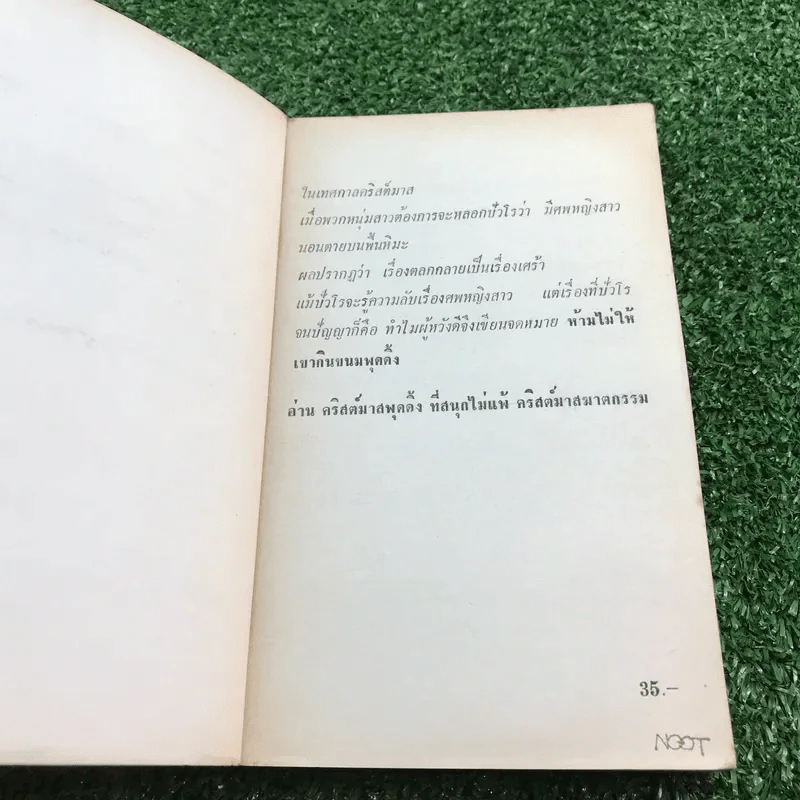 ในเทศกาลคริสต์มาส
เมื่อพวกหนุ่มสาวต้องการจะหลอกปัวโรว่า มีศพหญิงสาว
นอนตายบนพื้นหิมะ
ผลปรากฏว่า เรื่องตลกกลายเป็นเรื่องเศร้า
แม้ปัวโรจะรู้ความลับเรื่องศพหญิงสาว แต่เรื่องที่ปัวโร
จนปัญญาก็คือ ทำไมผู้หวังดีจึงเขียนจดหมาย ห้ามไม่ให้
เขากินขนมพุดดิ้ง
อ่าน คริสต์มาสพุดดิ้ง ที่สนุกไม่แพ้ คริสต์มาสฆาตกรรม
35.–
NOOT